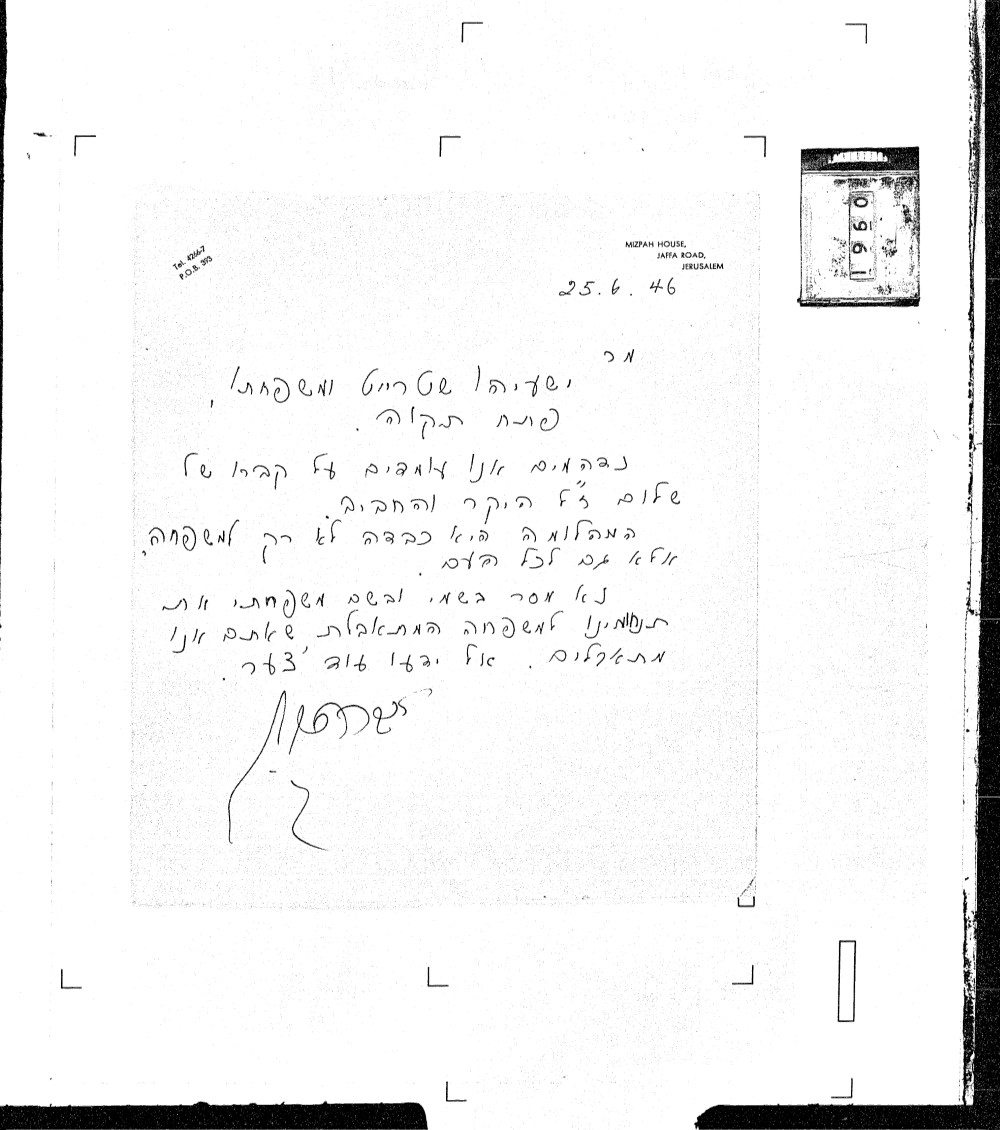 Tel. 4266-7
P.O.B. 373
MIZPAH HOUSE,
JAFFA ROAD,
JERUSALEM
25.6.46
1960
מר
ישעיהו שטרייט ומשפחתו,
פתח תקוה.
נדהמים אנו עומדים על קברו של
שלום ז"ל היקר והחביב.
המהלומה היא כבדה לא רק למשפחה,
אלא גם לכל העם.
נא מסר בשמי ובשם משפחתי את
תנחומינו למשפחה המתאבלת שאתם אנו
מתאבלים. אל ידעו עוד צער.